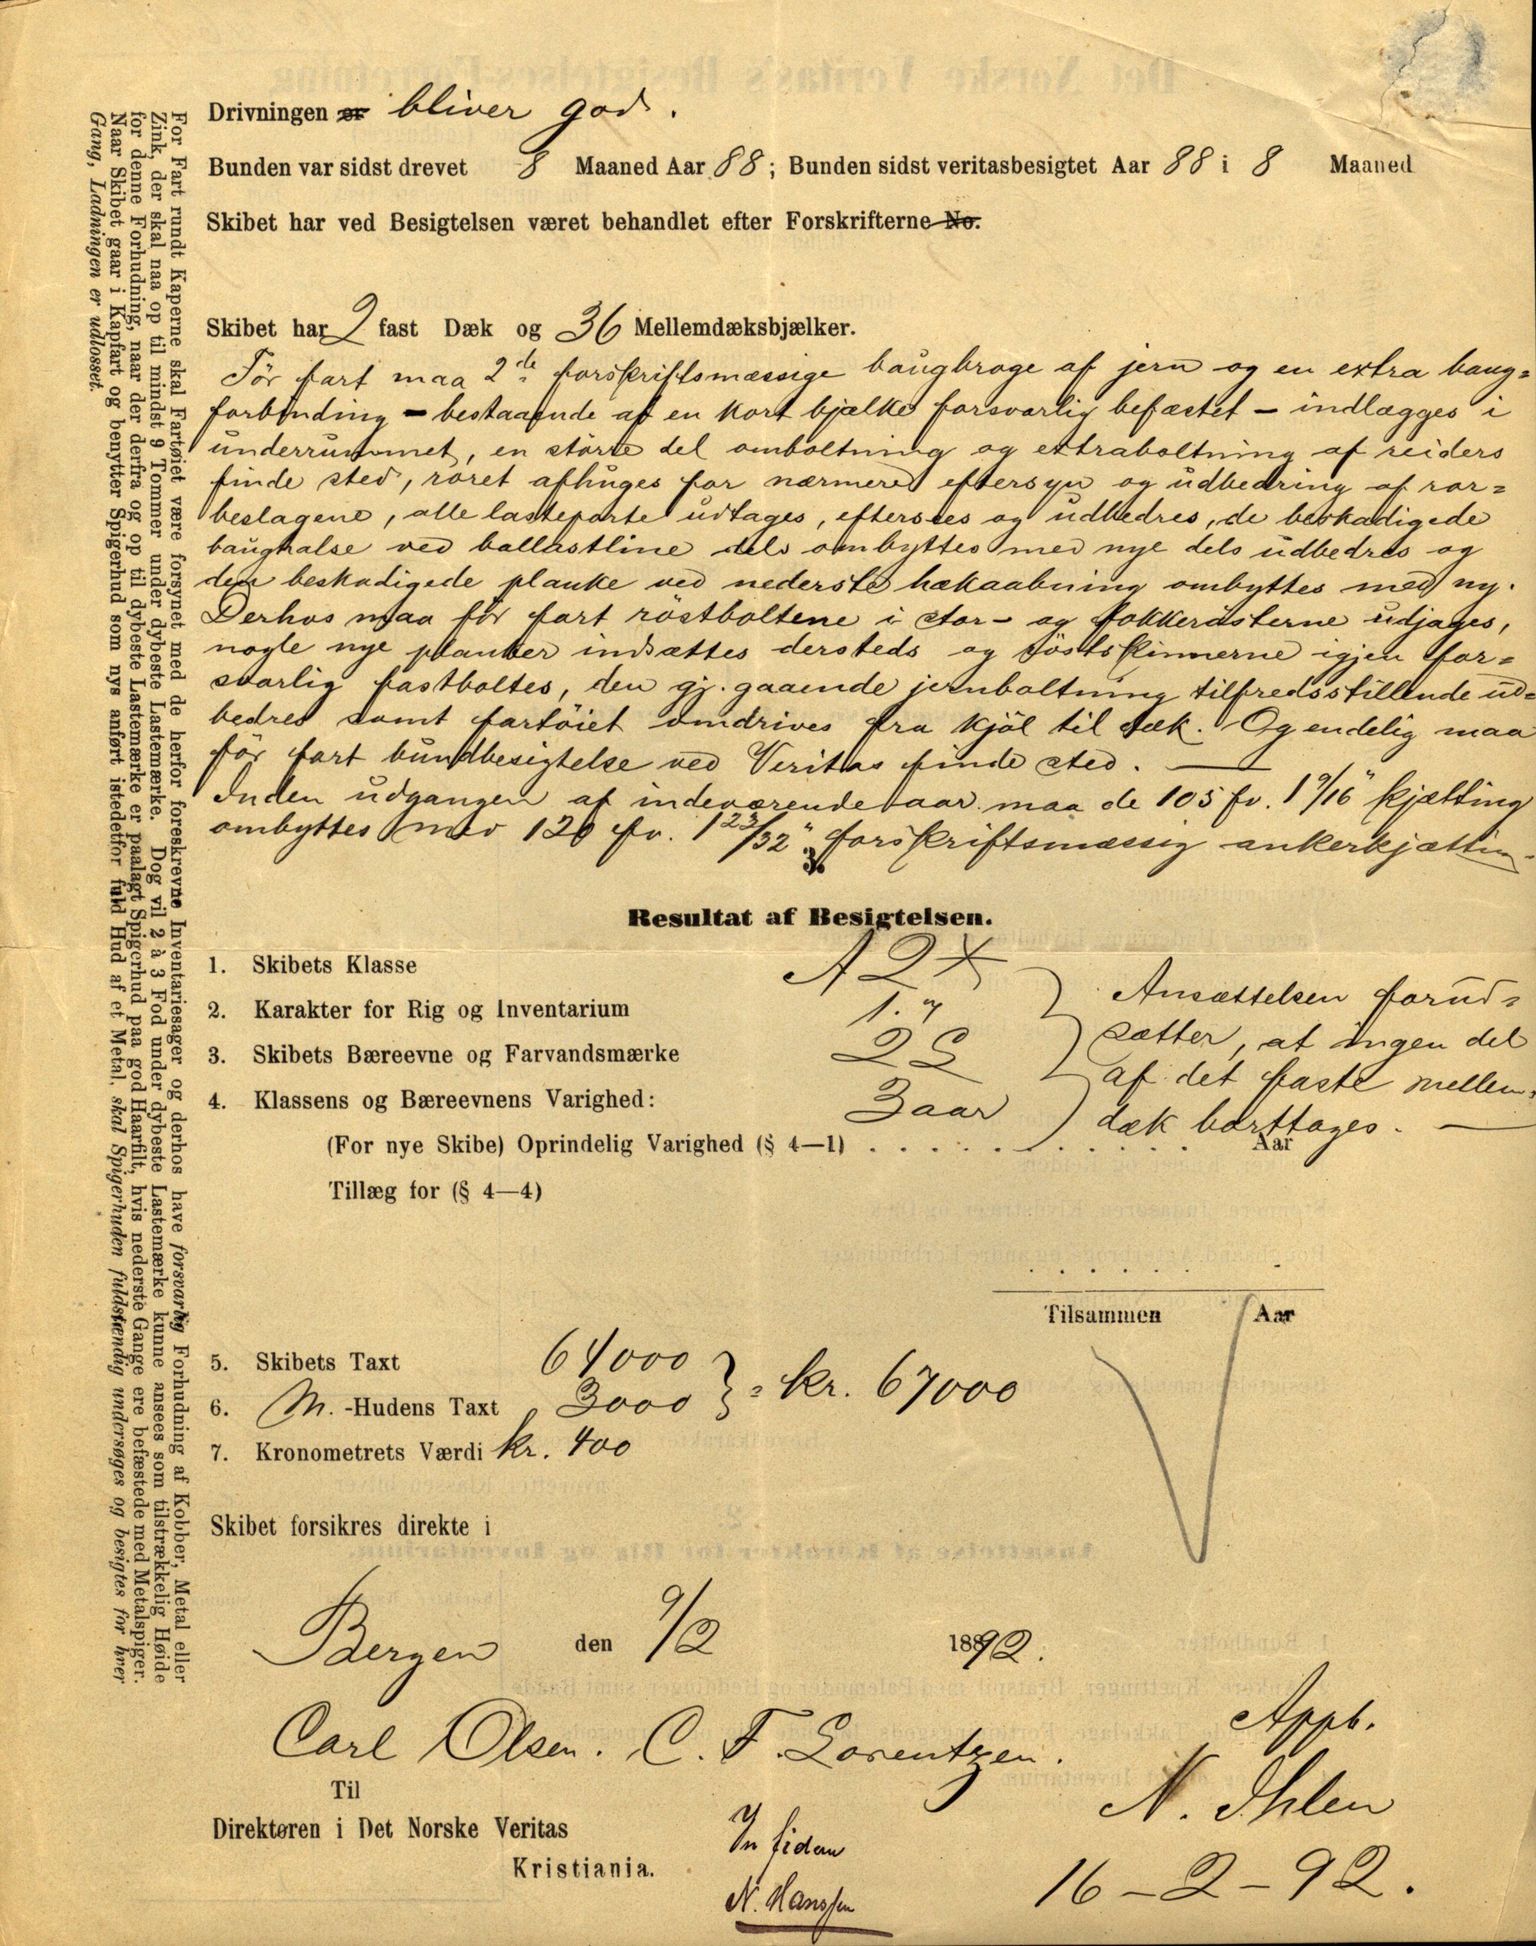 Drivningen er bliver god.
Bunden var sidst drevet 8 Maaned Aar 88; Bunden sidst veritasbesigtet Aar 88 i 8 Maaned
Skibet har ved Besigtelsen været behandlet efter Forskrifterne No.
Skibet har 2 fast Dæk og 36 Mellemdæksbjælker.
För fart maa 2de forskriftsmæssige baugbroge af jern og en extra baug=
forbinding - bestaaende af en kort bjælke forsvarlig befæstet - indlægges i
underrummet, en större del omboltning og extraboltning af reiders
finde sted, roret afhuges for nærmere eftersyn og udbedring af ror=
beslagene, alle lasteporte udtages, eftersees og udbedres, de beskadigede
baughalse ved ballastline dels ombyttes med nye dels udbedres og
den beskadigede planke ved nederste hækaabning ombyttes med ny.
Derhos maa för fart röstboltene i stor- og fokkerösterne udjages,
nogle nye planker indsættes dersteds og röstskinnerne igjen for=
svarlig fastboltes, den gj. gaaende jernboltning tilfredsstillende ud=
bedres samt fartöiet omdrives fra kjöl til dæk. Og endelig maa
för fart bundbesigtelse ved Veritas finde sted.
Inden udgangen af indeværende aar maa de 105 fv. 1 9/16" kjætting
ombyttes med 120 fv. 1 23/32" forskriftsmæssig ankerkjætting.
3.
Resultat af Besigtelsen.
1. Skibets Klasse A 2 *
2. Karakter for Rig og Inventarium 1."
3. Skibets Bæreevne og Farvandsmærke 2 S
4. Klassens og Bæreevnens Varighed: 3 aar
Ansættelsen forud=
sætter, at ingen del
af det faste mellem=
dæk borttages.
(For nye Skibe) Oprindelig Varighed (§ 4—1) . . . . . . . . . . . Aar
Tillæg for (§ 4—4)
Tilsammen Aar
5. Skibets Taxt 64000
6. M.-Hudens Taxt 3000 } = kr. 67000
7. Kronometrets Værdi kr. 400
Skibet forsikres direkte i
Bergen den 9/2 1892.
Carl Olsen. C. F. Lorentzen.
Appb.
N. Ihlen
16-2-92.
Til
Direktøren i Det Norske Veritas
Kristiania.
In fidem
N. Hanssen
For Fart rundt Kaperne skal Fartøiet være forsynet med de herfor foreskrevne Inventariesager og derhos have forsvarlig Forhudning af Kobber, Metal eller
Zink, der skal naa op til mindst 9 Tommer under dybeste Lastemærke. Dog vil 2 à 3 Fod under dybeste Lastemærke kunne ansees som tilstrækkelig Høide
for denne Forhudning, naar der derfra og op til dybeste Lastemærke er paalagt Spigerhud paa god Haarfilt, hvis nederste Gange ere befæstede med Metalspiger.
Naar Skibet gaar i Kapfart og benytter Spigerhud som nys anført istedetfor fuld Hud af et Metal, skal Spigerhuden fuldstændig undersøges og besigtes for hver
Gang, Ladningen er udlosset.